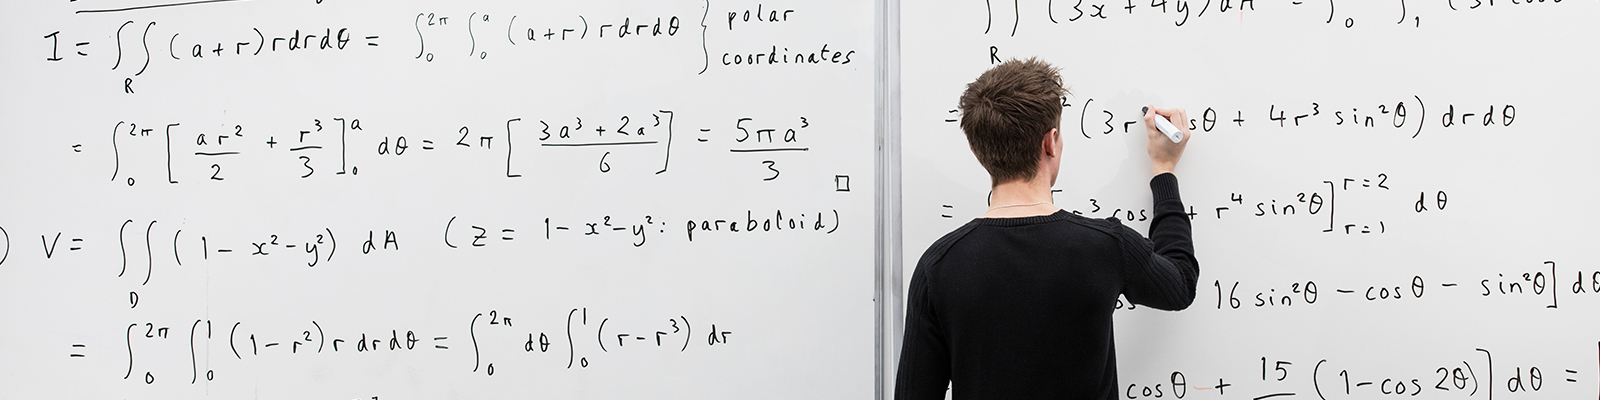 I = ∬_R (a+r) r dr dθ = ∫_0^{2π} ∫_0^a (a+r) r dr dθ } polar coordinates
= ∫_0^{2π} [ ar²/2 + r³/3 ]_0^a dθ = 2π [ (3a³ + 2a³)/6 ] = 5πa³/3 □
) V = ∬_D (1 - x² - y²) dA (z = 1 - x² - y² : paraboloid)
= ∫_0^{2π} ∫_0^1 (1 - r²) r dr dθ = ∫_0^{2π} dθ ∫_0^1 (r - r³) dr
∬_R (3x + 4y
= ² (3r sθ + 4r³ sin²θ) dr dθ
= ³ cos + r⁴ sin²θ]_{r=1}^{r=2} dθ
16 sin²θ - cosθ - sin²θ] dθ
cosθ + 15 (1 - cos 2θ)] dθ =